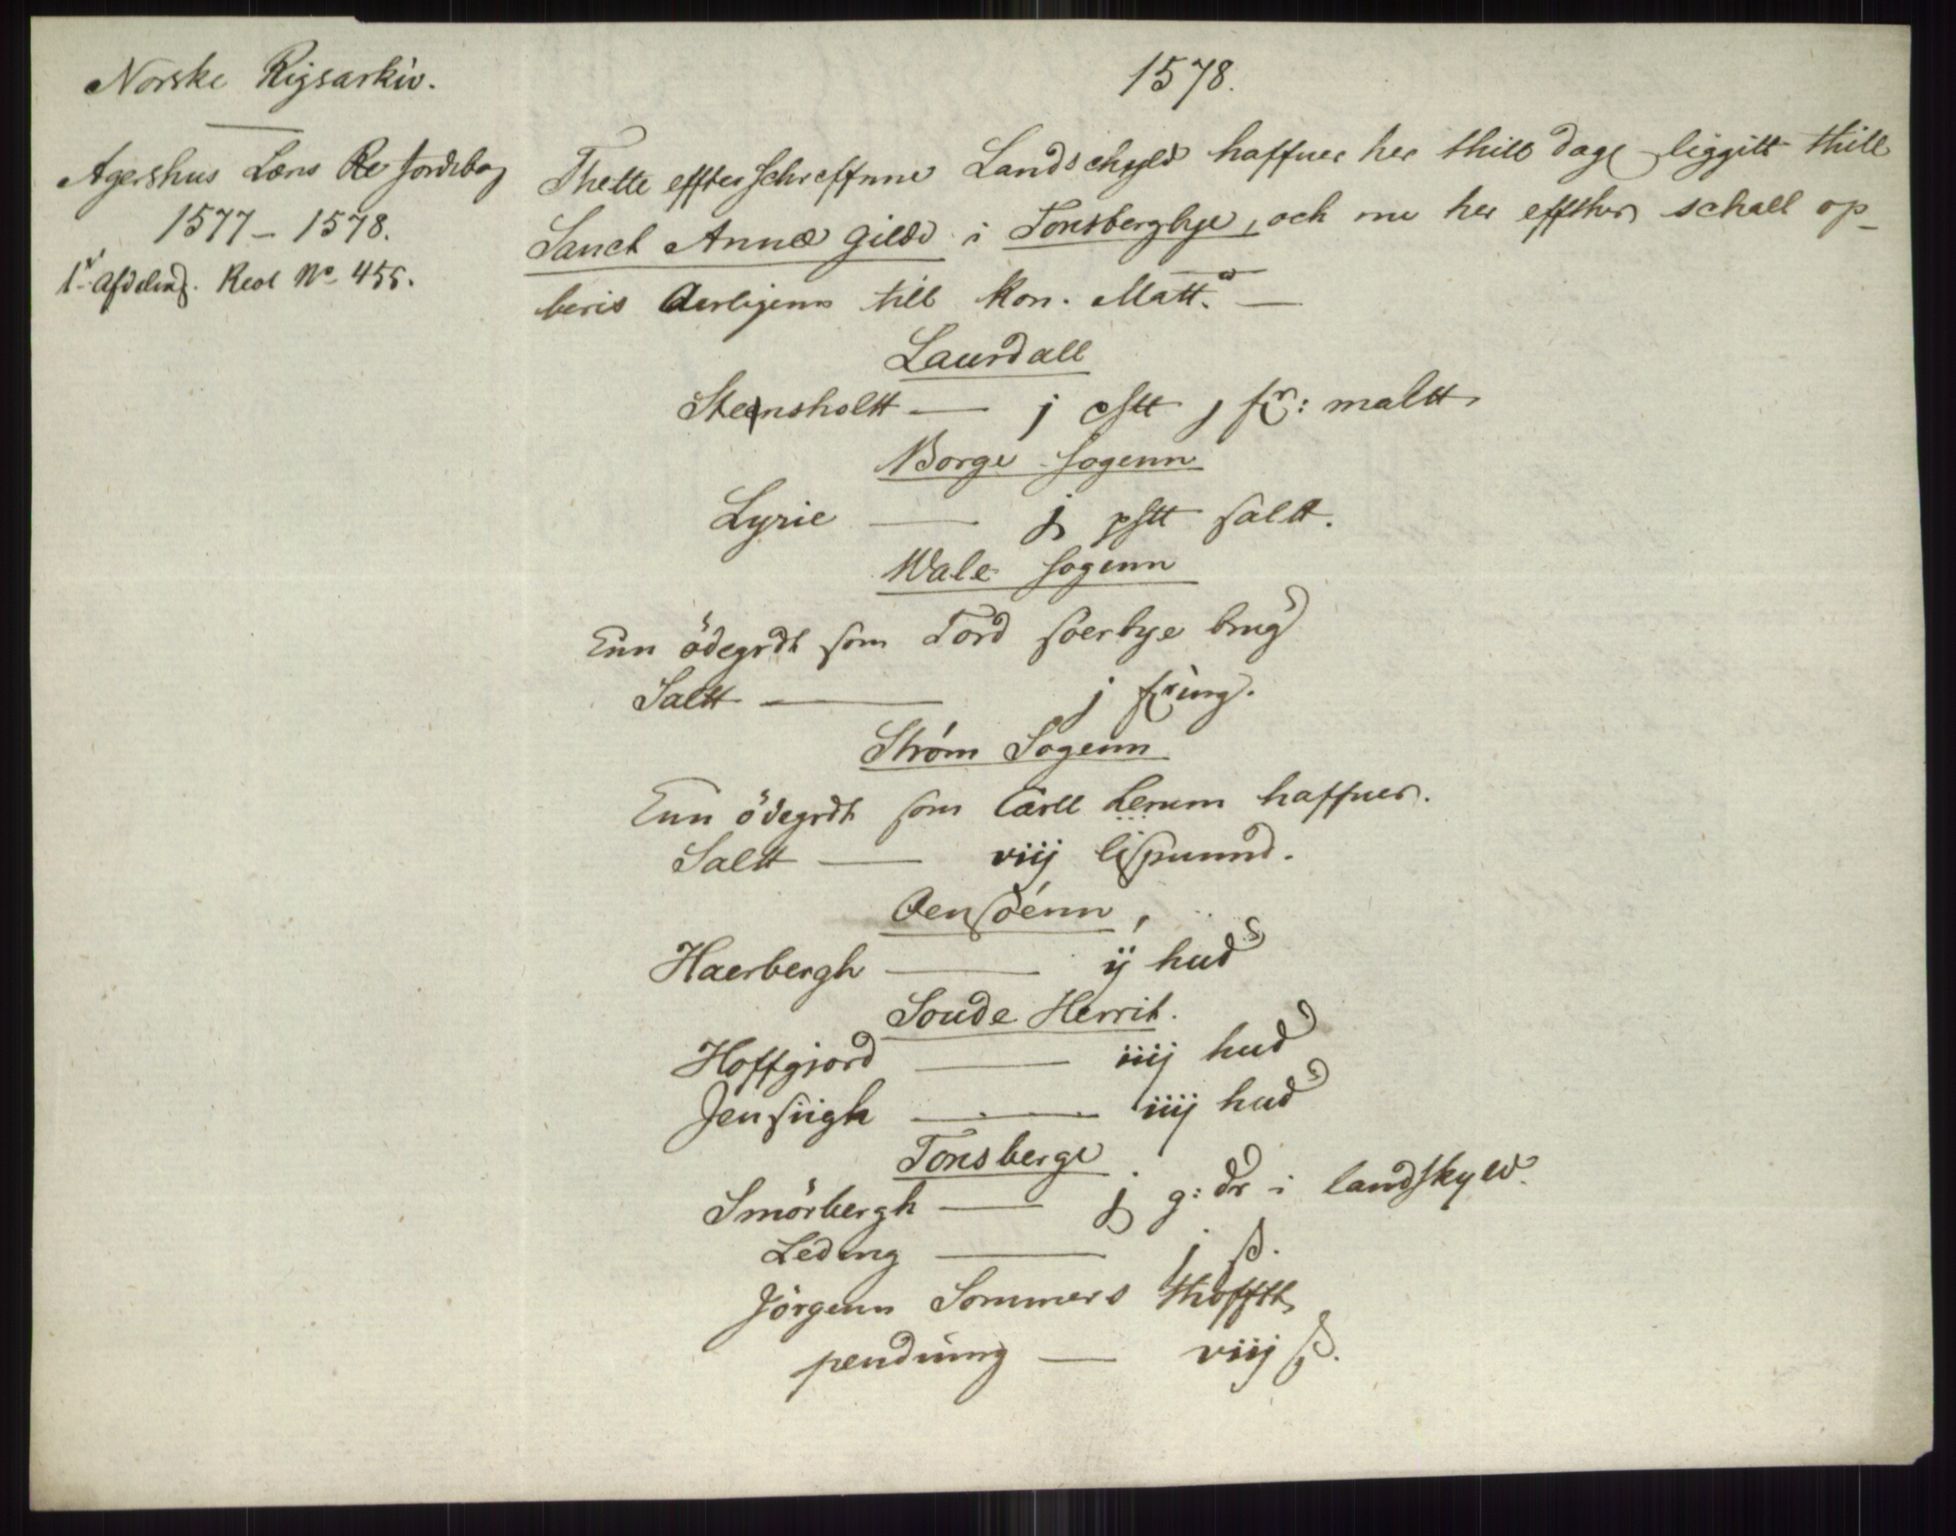 Norske Rigsarkiv.
Agershus Læns Jordebog
1577 – 1578.
1ste Afdeling. Reol No 455.
1578.
Thette effterschreffnne Landschyld haffuer her thill dage liggitt thill
Sanct Annæ Gilde i Tonsbergbye, och nu her effther schall op-
beris Aerligenn till Kon. Matt.
Laurdall
Stensholtt — j ff: maltt
Borge Sogenn
Lyrie — j pstt saltt.
Wale sogenn
Enn ödegrdt som Tord soerbye brug
Saltt — j fring.
Ström Sogenn
Enn ödegrdt som Carll Lerum haffuer.
Saltt — viij lispuund.
Oensöenn
Haerbergh — ij hud
Soude Herrit.
Hoffgjord — iiij hud
Jensiigh — iiij hud
Tonsberge
Smörbergh — j g: dr i landskyld.
Leding — j ß.
Jörgenn Sommers thofftt
penduing — viij ß.